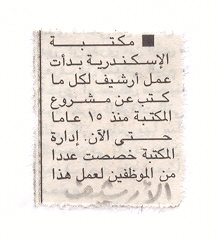 ■ مكتبة
الإسكندرية بدأت
عمل أرشيف لكل ما
كتب عن مشروع
المكتبة منذ ١٥ عاما
حتى الآن. إدارة
المكتبة خصصت عددا
من الموظفين لعمل هذا
الأرشيف